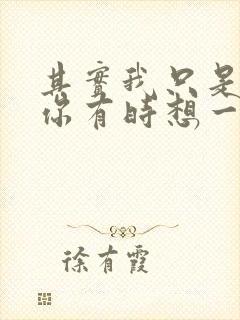 其實我只是
你有時想一
徐有霞